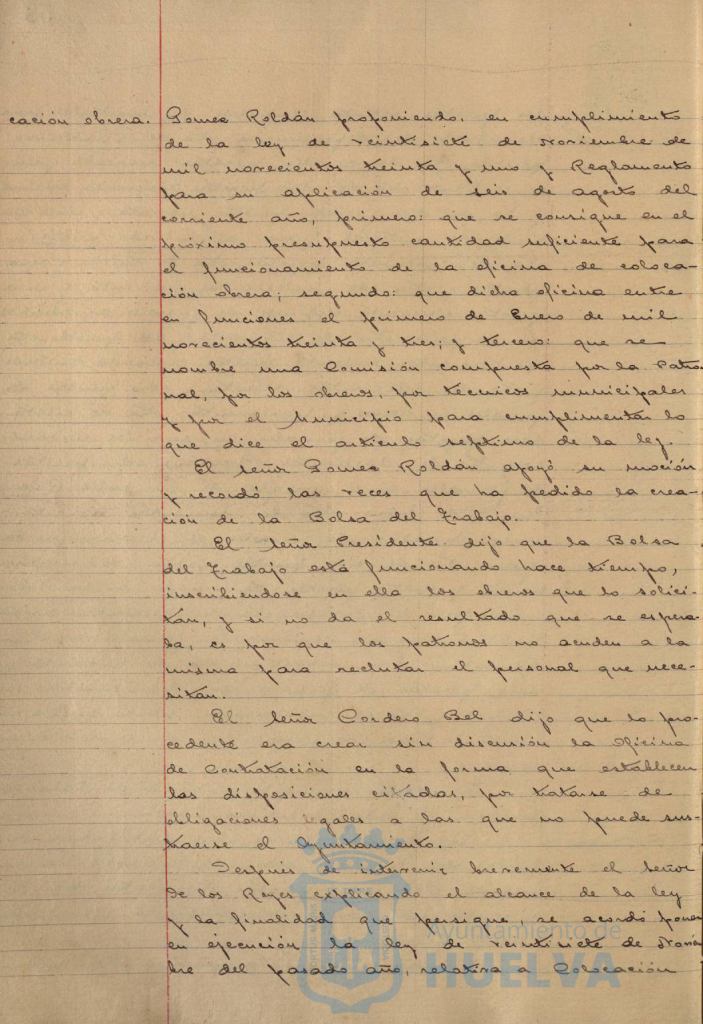 cación obrera.
Gomez Roldán proponiendo, en cumplimiento
de la ley de veintisiete de Noviembre de
mil novecientos treinta y uno y Reglamento
para su aplicación de seis de agosto del
corriente año, primero: que se consigne en el
próximo presupuesto cantidad suficiente para
el funcionamiento de la oficina de coloca-
ción obrera; segundo: que dicha oficina entre
en funciones el primero de Enero de mil
novecientos treinta y tres; y tercero: que se
nombre una Comisión compuesta por la Patro-
nal, por los obreros, por técnicos municipales
y por el Municipio para cumplimentar lo
que dice el artículo septimo de la ley.
El señor Gomez Roldán apoyó su moción
y recordó las veces que ha pedido la crea-
ción de la Bolsa del Trabajo.
El señor Presidente dijo que la Bolsa
del Trabajo está funcionando hace tiempo,
inscribiendose en ella los obreros que lo solici-
tan, y si no da el resultado que se espera-
ba, es por que los patronos no acuden a la
misma para reclutar el personal que nece-
sitan.
El señor Cordero Bel dijo que lo pro-
cedente era crear sin discusión la Oficina
de Contratación en la forma que establecen
las disposiciones citadas, por tratarse de
obligaciones legales a las que no puede sus-
traerse el Ayuntamiento.
Después de intervenir brevemente el señor
de los Reyes explicando el alcance de la ley
y la finalidad que persigue, se acordó poner
en ejecución la ley de veintisiete de Noviem-
bre del pasado año, relativa a Colocación
Ayuntamiento de
HUELVA